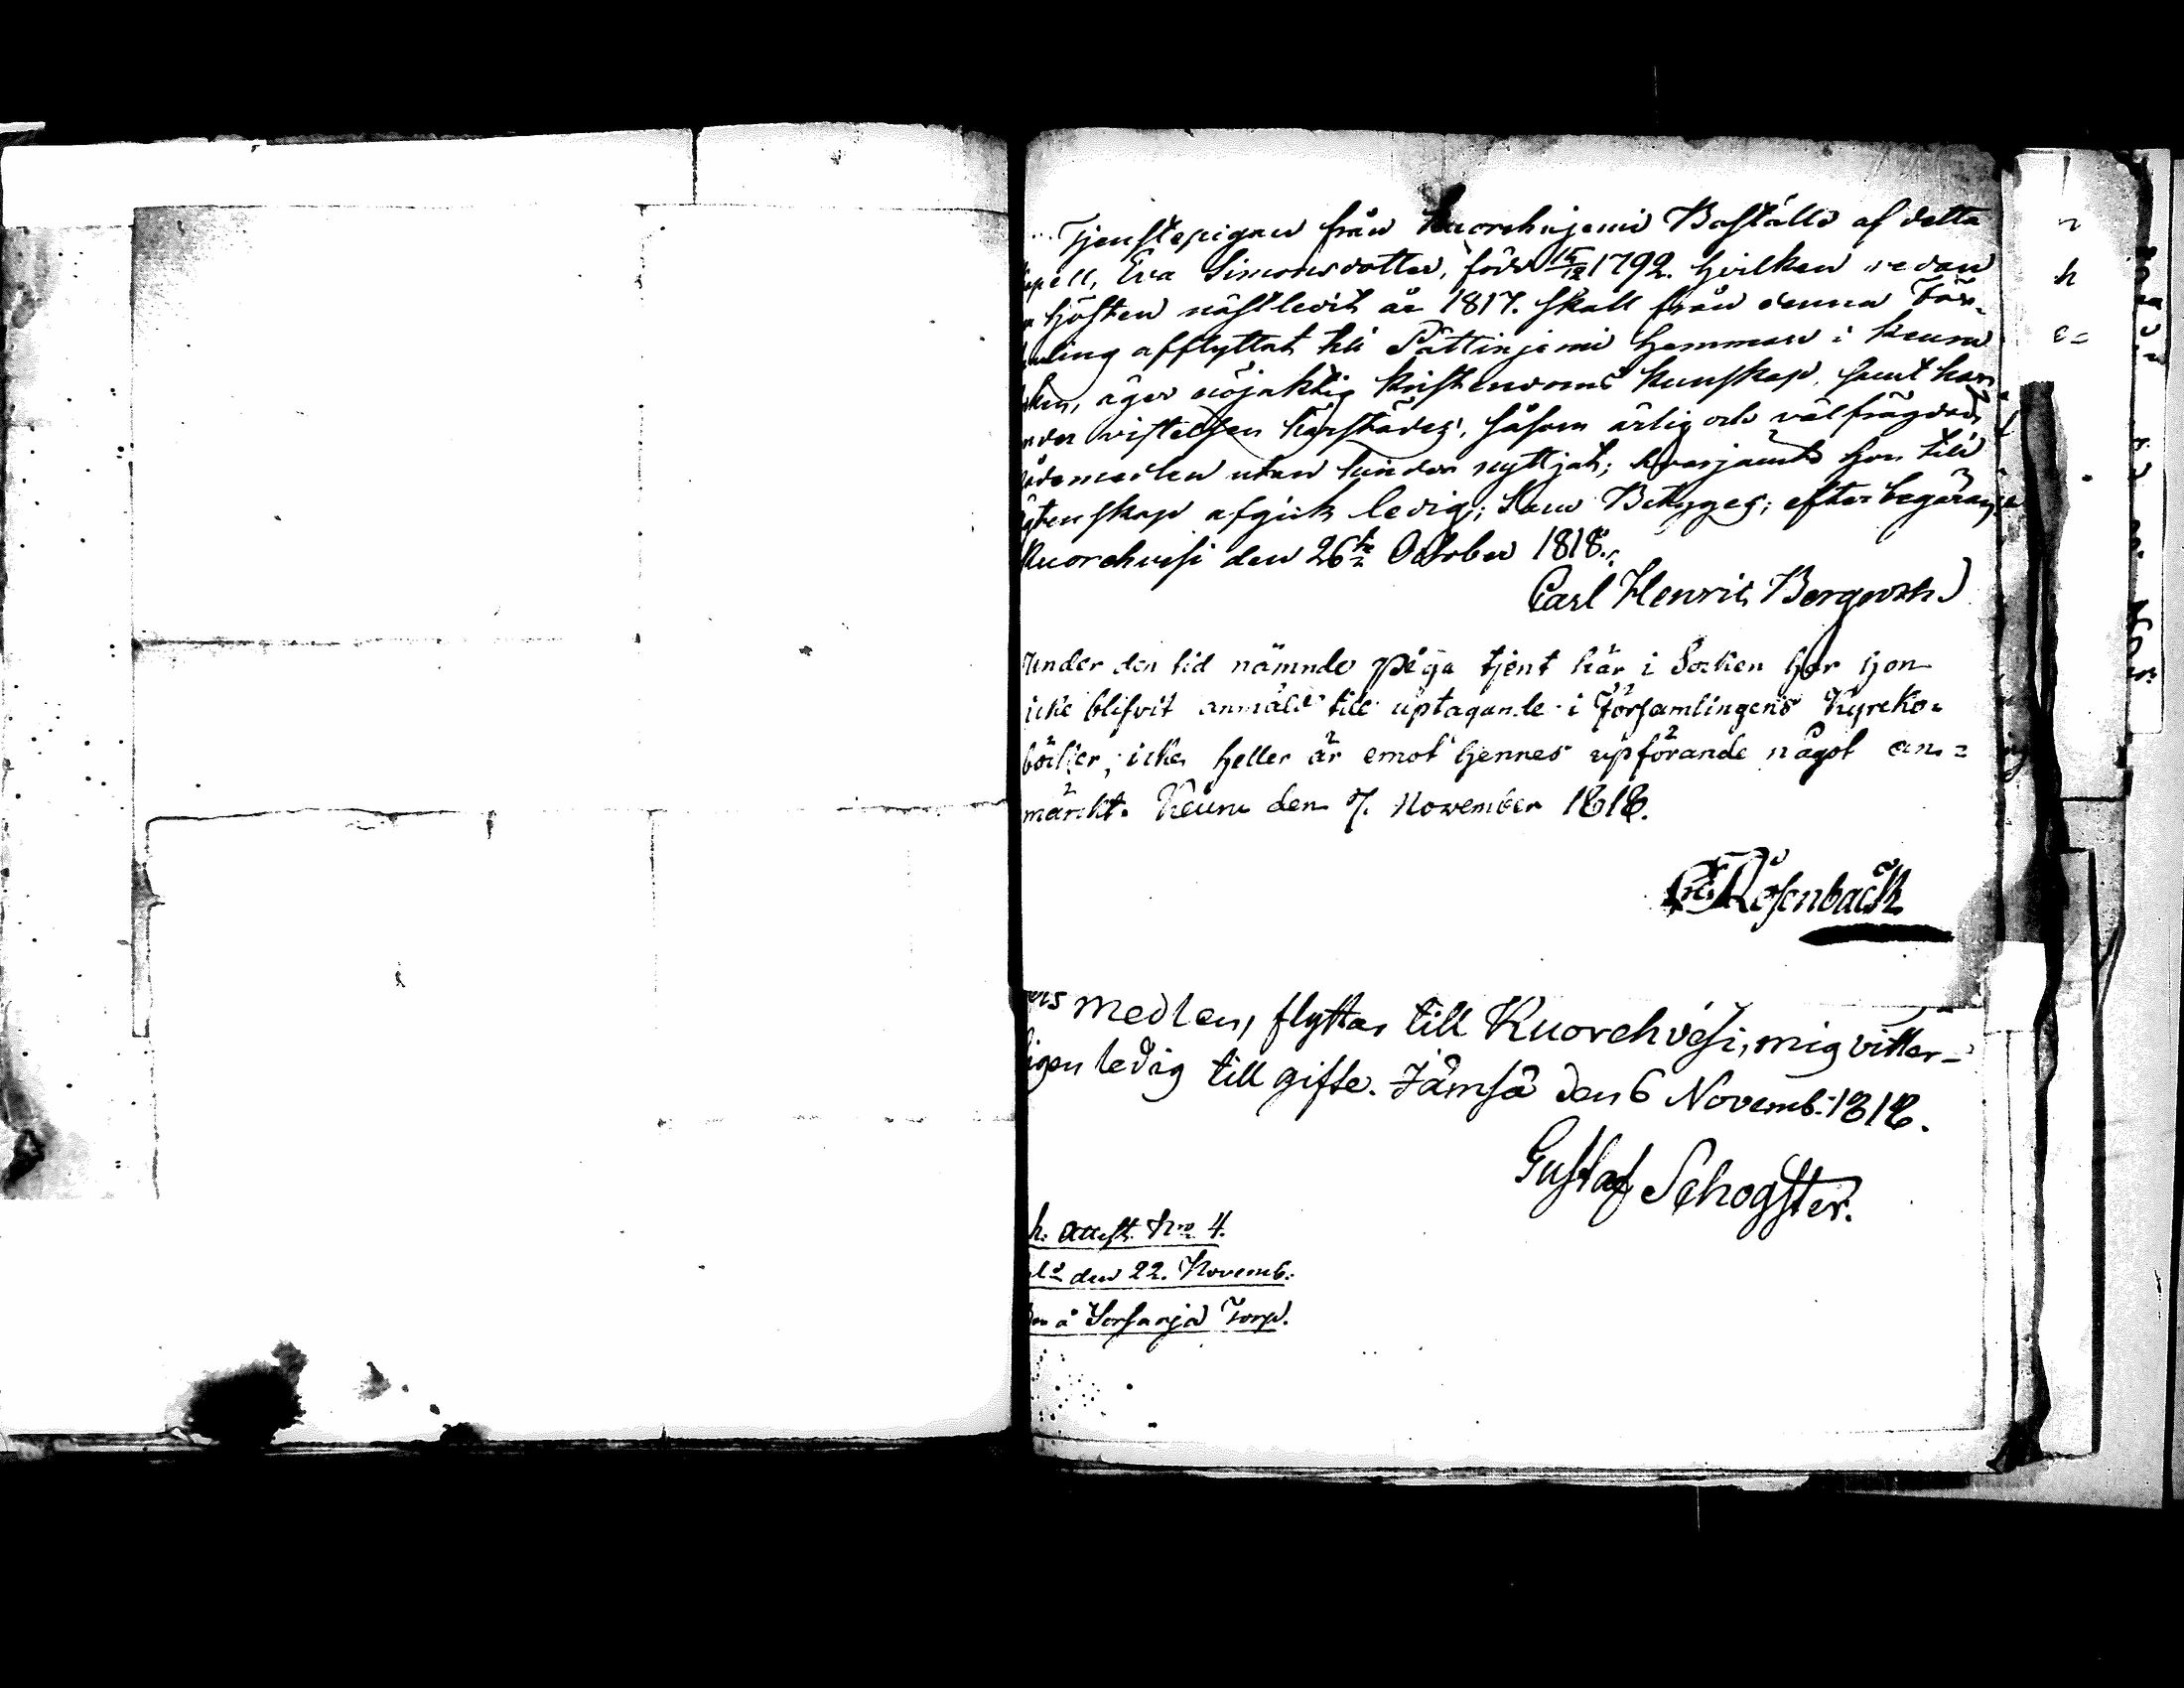 Tjenstepigan från Kuorehnjemi Boställe af detta
apell, Eva Simonsdotter, född 15/12 1792. hvilken sedan
hösten nästledit år 1817. skall från denna För-
mling afflyttat till Pättinjemi hemman i Keuru
ken, äger nöjaktig kristendoms kunskap, samt har
nder vistelsen härstädes, såsom ärlig och välfrägdad,
ådemedlen utan hinder nyttjat; hvarjämte hon till
gtenskap afgick ledig; Som Betygges; efter begäran
Kuorehvesi den 26te October 1818.
Carl Henric Bergroth
Under den tid nämnde piga tjent här i Socken har hon
icke blifvit anmäld till uptagande i Församlingens Kyrko=
böcker, icke heller är emot hennes upförande något an=
märkt. Keuru den 7. November 1818.
Rosenbäck
ens medlen, flyttar till Kuorehvesi, mig vitter-
ligen ledig till gifte. Jämsä den 6 Novemb: 1818.
Gustaf Schogster.
h. Attest. Nro 4.
den 22. Novemb.
å Torp.